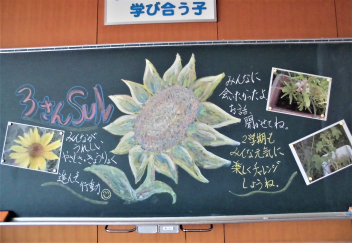 学び合う子
3さんSUN
みんなが
うれしい
やさしさ・きょうりょく
進んで
行動
みんなに
会いたかったよ
お話
聞かせてね。
2学期も
みんな元気に
楽しくチャレンジ
しようね。